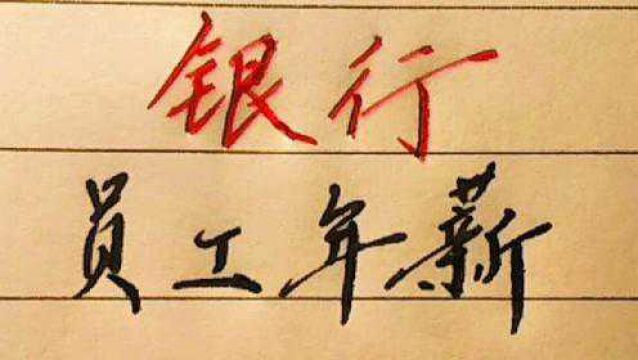 银行
员工年薪